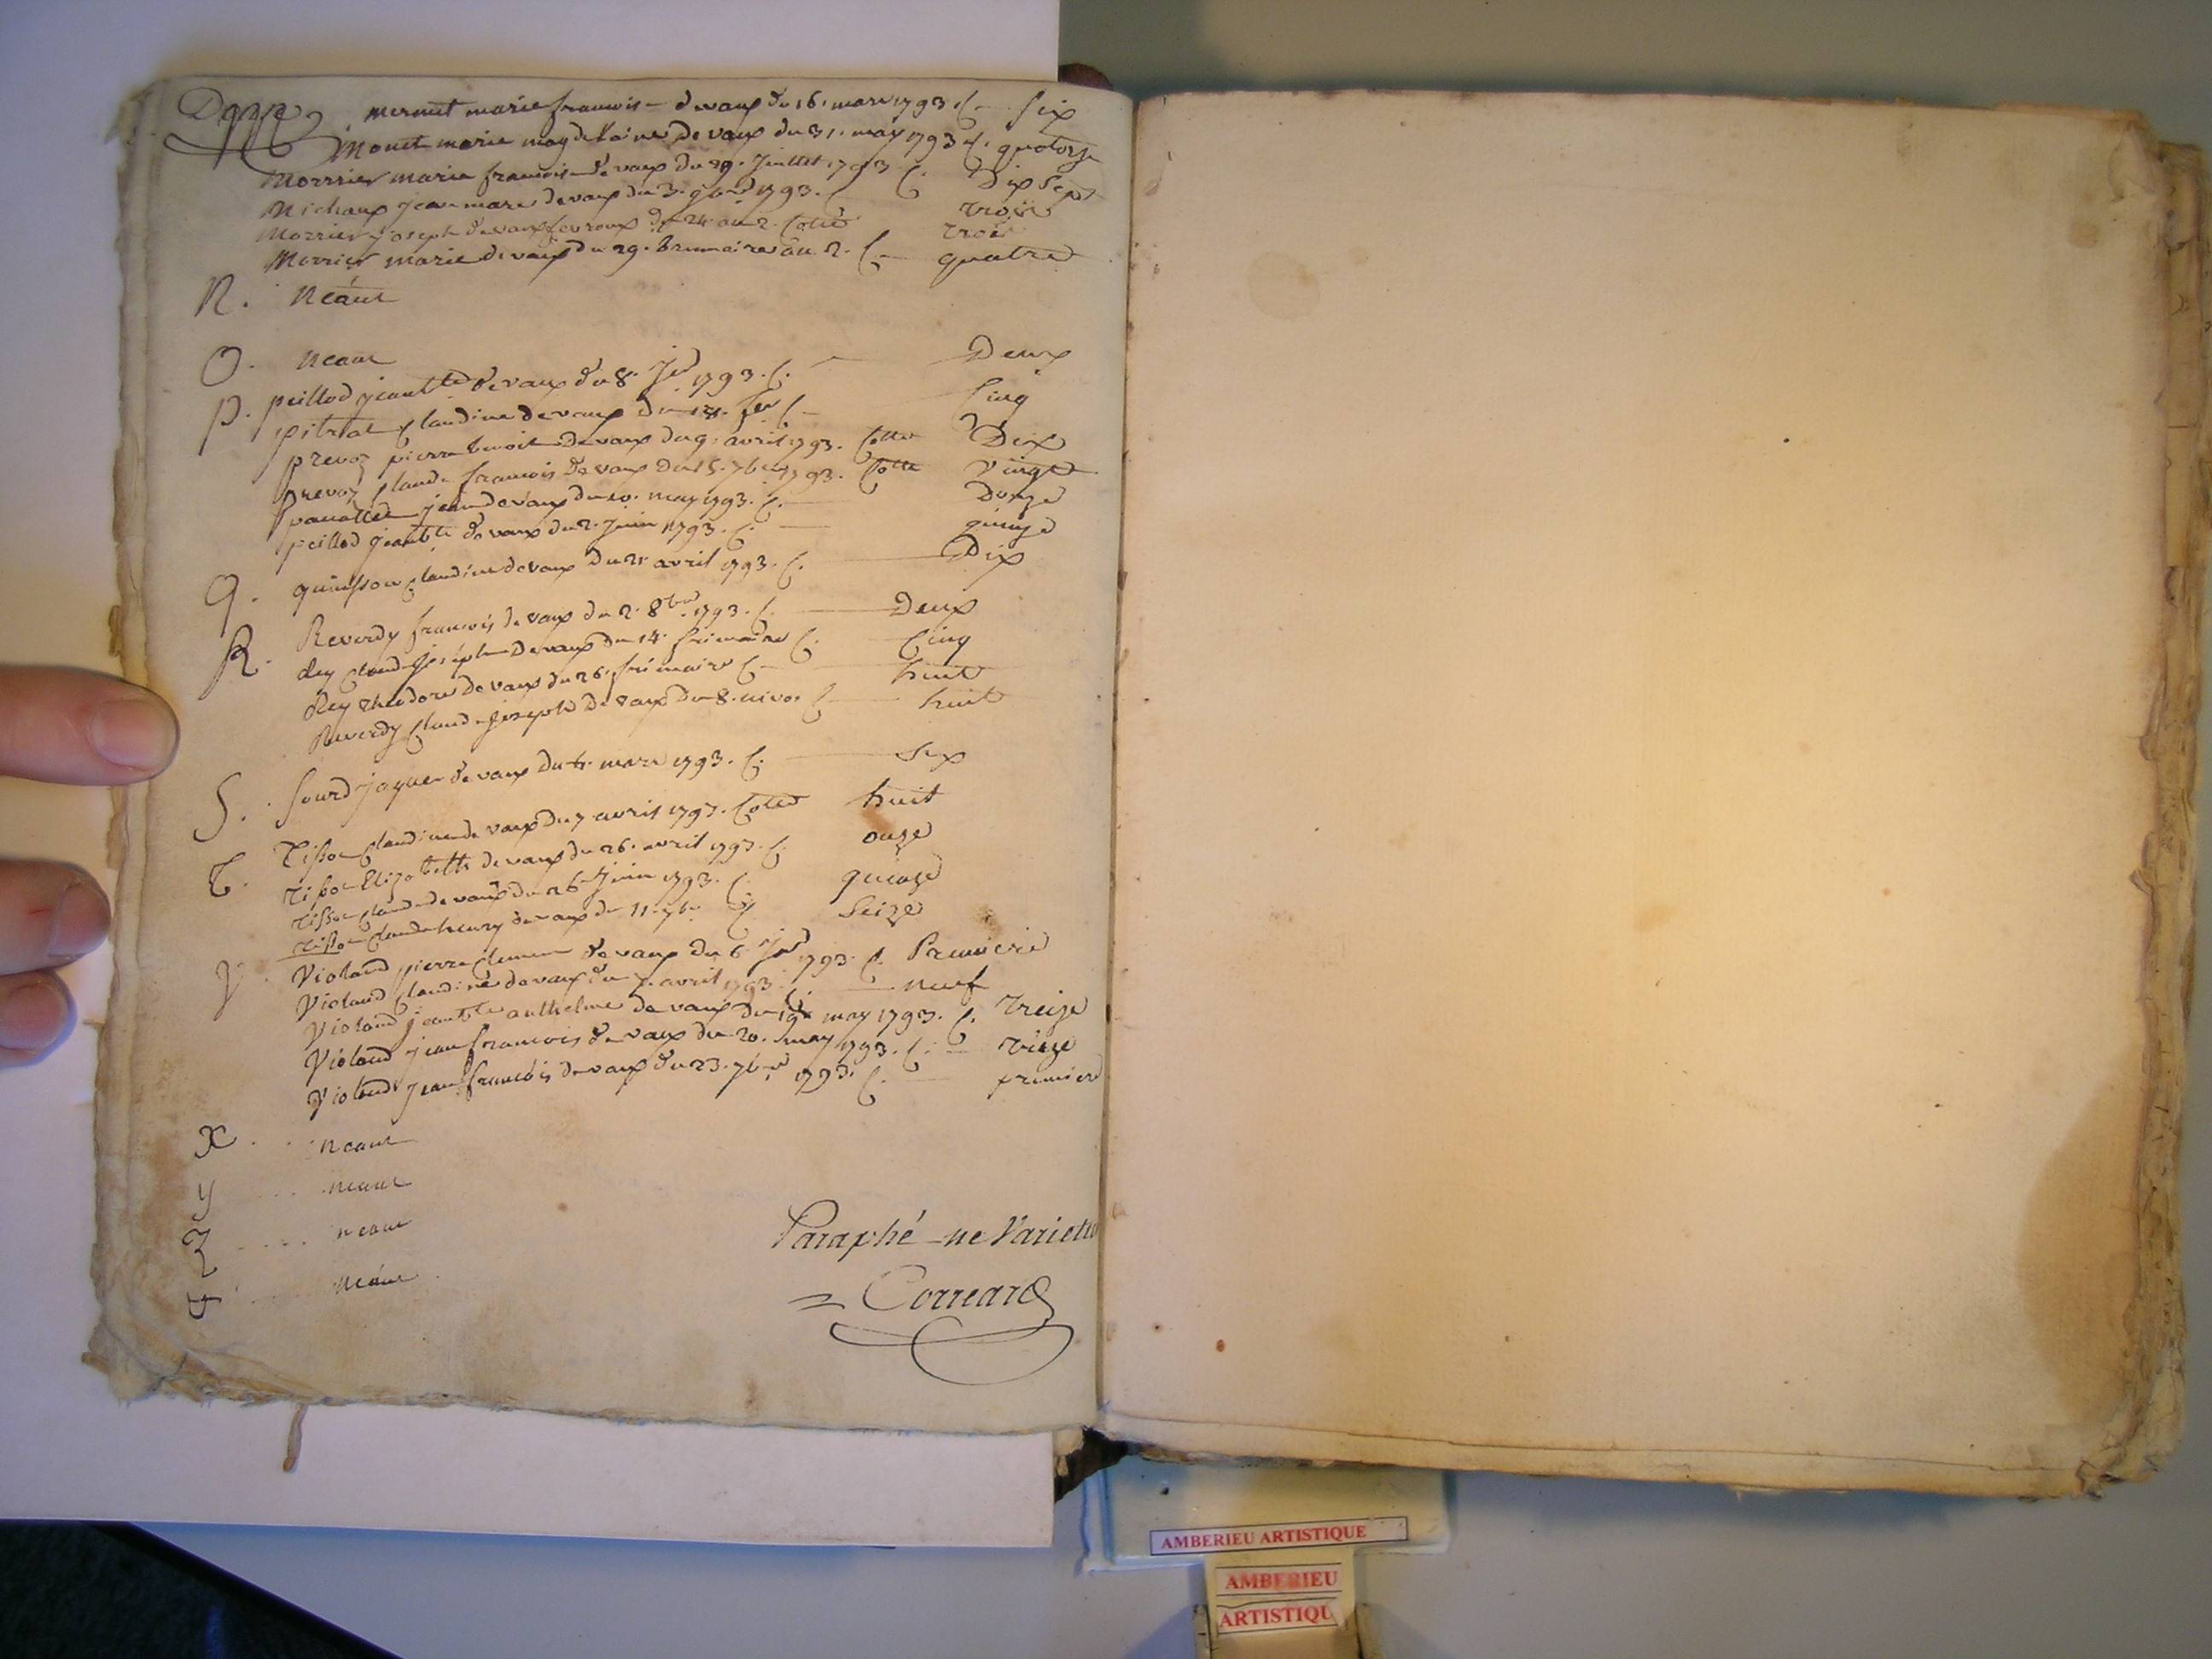 mermet marie francois de vaux du 16. mars 1793. C. six
Monet marie magdelaine de vaux du 31. may 1793 C. quatorze
Morrier marie francois de vaux du 29. Juillet 1793 C. Dix sept
Michaux jean marc de vaux du 3. 9bre 1793. C. trois
Morrier joseph de vaux du 24. an 2. Cotte trois
Morrier marie de vaux du 29. brumaire an 2. C. quatre
N. Néant
O. neant
P. peillod jean bte de vaux du 8. Jer 1793. C. Deux
pitrat Claudine de vaux du 18. fer C. Cinq
prevoz pierre benoit de vaux du 9. avril 1793. Cotte Dix
prevoz Claude francois de vaux du 15. 7bre 1793. Cotte Vingt
jean de vaux du 10. may 1793. C. Douze
peillod jean bte de vaux du 2. Juin 1793. C. quinze
Q. quinsson Claudine de vaux du 21 avril 1793. C. Dix
R. Reverdy francois de vaux du 2. 8bre 1793. C. Deux
Rey Claude Joseph de vaux du 14. frimaire C. Cinq
Rey theodore de vaux du 26. frimaire C. huit
Reverdy Claude joseph de vaux du 8. nivos C. huit
S. Sourd jaques de vaux du mars 1793. C. Six
T. Tissot Claudine de vaux du 7 avril 1793. Cotte huit
tissot Elizabeth de vaux du 26. avril 1793. C. onze
tissot Claude de vaux du 26 Juin 1793. C. quinze
tissot Claude henry de vaux du 11. 7bre C. Seize
V. Violand pierre Clement de vaux du 6 jer 1793. C. Premiere
Violand Claudine de vaux du 7. avril 1793. C. neuf
Violand jean bte anthelme de vaux du 19 may 1793. C. treize
Violand jean francois de vaux du 20. may 1793. C. treize
Violand jean francois de vaux du 23. 7bre 1793. C. premiere
X . . neant
y . . . neant
Z . . . . neant
& . . . . néant
Paraphé ne Varietur
= Correard
AMBERIEU ARTISTIQUE
AMBERIEU
ARTISTIQU